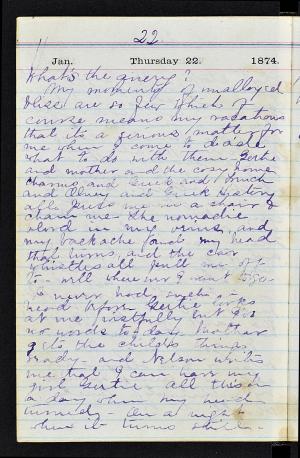 22.
Jan. Thursday 22. 1874.
What's the query?
My moments of unalloyed
bliss are so few which of
course means my vacations
that its a serious matter for
me when I come to decide
what to do with them.
and mother and the cosy home
charms and and
and and
me in a chair &
chain me - the nomadic
blood in my veins and
my backache and my head
that turns and the car
whistles all pull me off
to - well where
never
read before Gertie looks
at me wistfully but has
no words to day. Mother
gets the childs things
ready - and Nelson writes
me that I can have my
girl Gertie - all this in
a day when my head
turned - On a night
when it turns still -